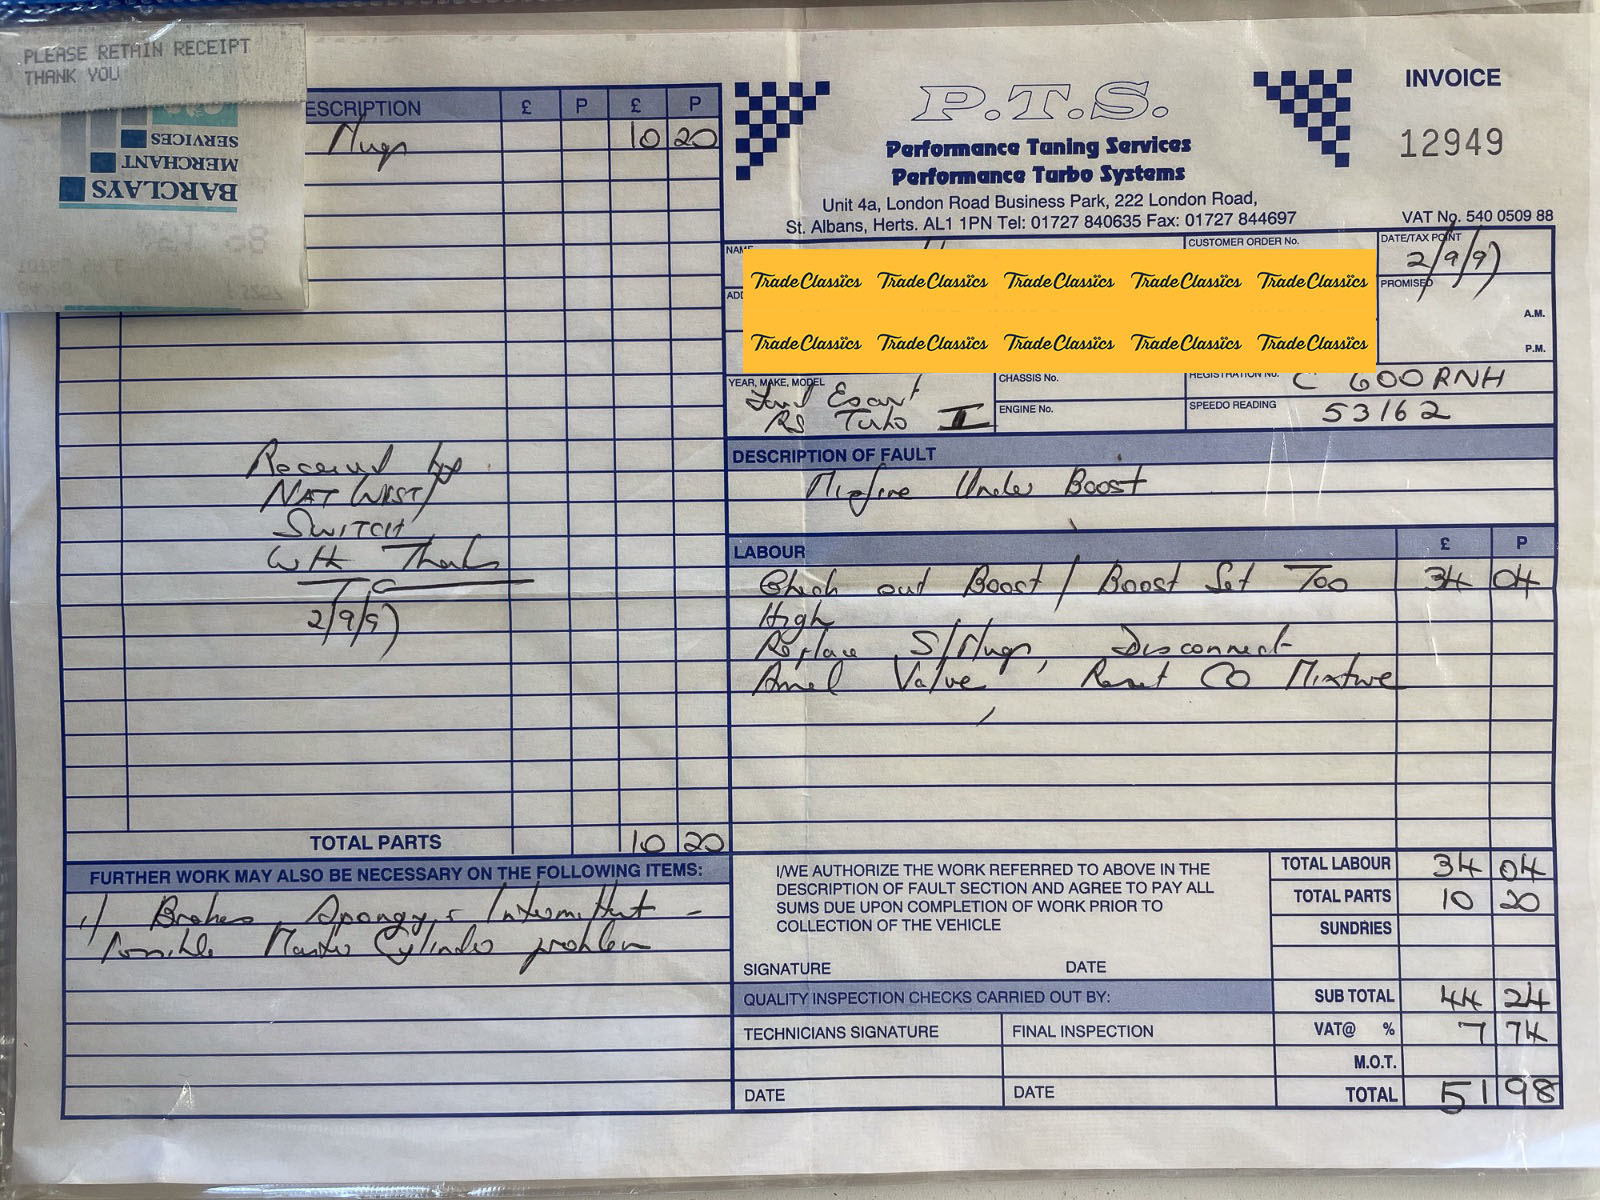 PLEASE RETAIN RECEIPT
THANK YOU
BARCLAYS
MERCHANT
SERVICES
ESCRIPTION £ P £ P
Plugs 10 20
Received by
NAT WEST/
SWITCH
With Thanks
TC
2/9/97
TOTAL PARTS 10 20
FURTHER WORK MAY ALSO BE NECESSARY ON THE FOLLOWING ITEMS:
1/ Brakes Spongy & Intermittent -
Possible Master Cylinder problem
P.T.S.
Performance Tuning Services
Performance Turbo Systems
Unit 4a, London Road Business Park, 222 London Road,
St. Albans, Herts. AL1 1PN Tel: 01727 840635 Fax: 01727 844697
INVOICE
12949
VAT No. 540 0509 88
CUSTOMER ORDER No.
DATE/TAX POINT
2/9/97
PROMISED
A.M.
P.M.
TradeClassics TradeClassics TradeClassics TradeClassics TradeClassics
TradeClassics TradeClassics TradeClassics TradeClassics TradeClassics
YEAR, MAKE, MODEL
Ford Escort
RS Turbo II
CHASSIS No.
ENGINE No.
REGISTRATION No. C 600 RNH
SPEEDO READING 53162
DESCRIPTION OF FAULT
Misfire Under Boost
LABOUR £ P
Check out Boost / Boost Set Too 34 04
High
Replace S/Plugs, Disconnect
Amal Valve, Reset CO Mixture
I/WE AUTHORIZE THE WORK REFERRED TO ABOVE IN THE
DESCRIPTION OF FAULT SECTION AND AGREE TO PAY ALL
SUMS DUE UPON COMPLETION OF WORK PRIOR TO
COLLECTION OF THE VEHICLE
SIGNATURE DATE
QUALITY INSPECTION CHECKS CARRIED OUT BY:
TECHNICIANS SIGNATURE FINAL INSPECTION
DATE DATE
TOTAL LABOUR 34 04
TOTAL PARTS 10 20
SUNDRIES
SUB TOTAL 44 24
VAT@ % 7 74
M.O.T.
TOTAL 51 98